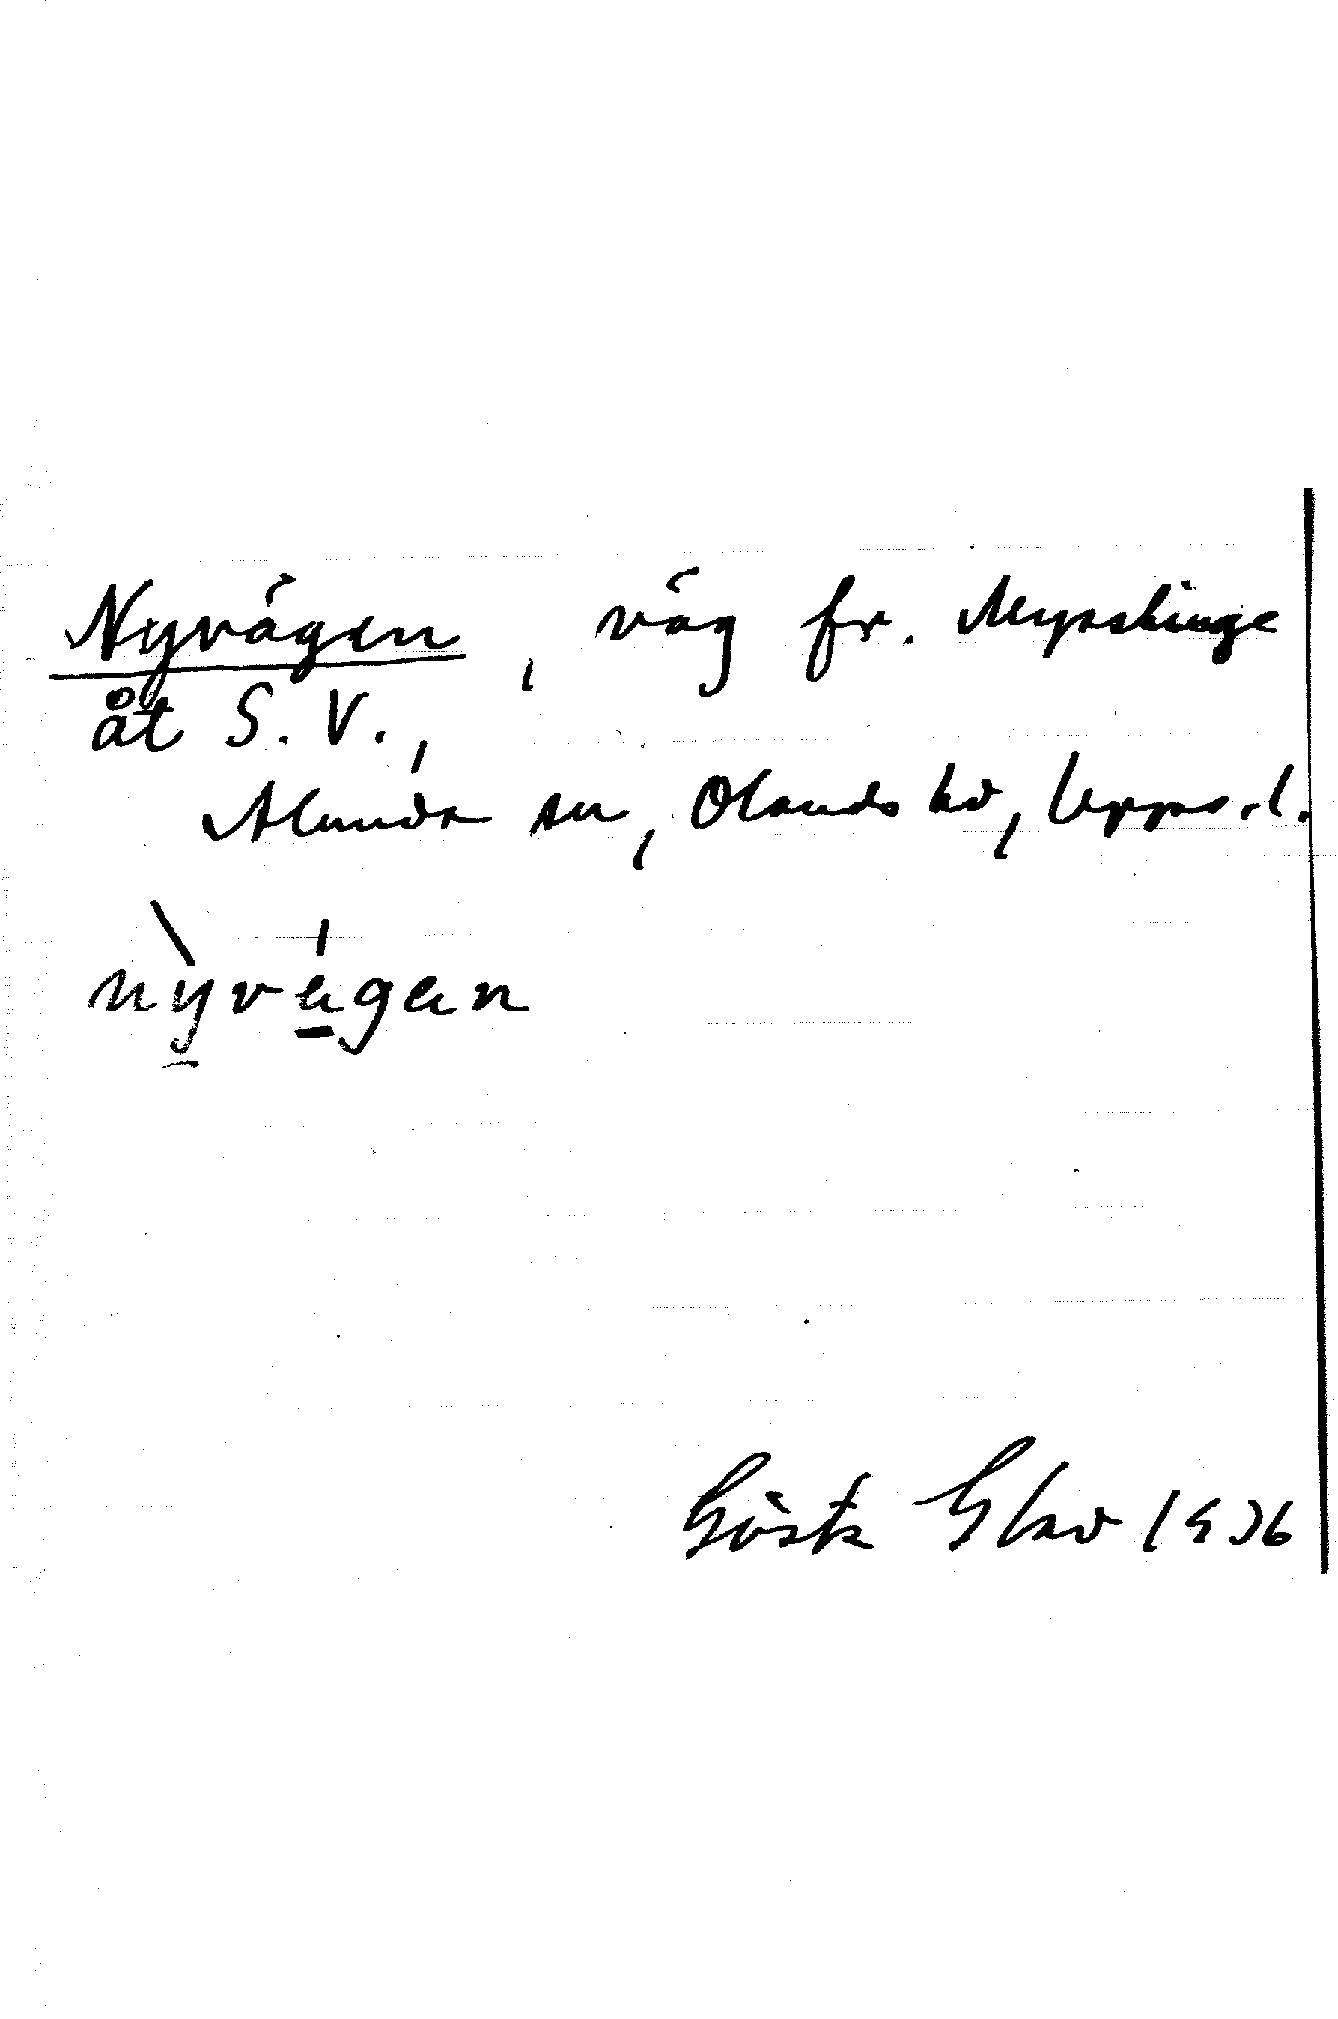 Nyvägen, väg fr. Myssinge
åt S. V.,
Alunda sn, Olands hd, Upps. l.
nỳvä́gen
Gösta Elwo 1936